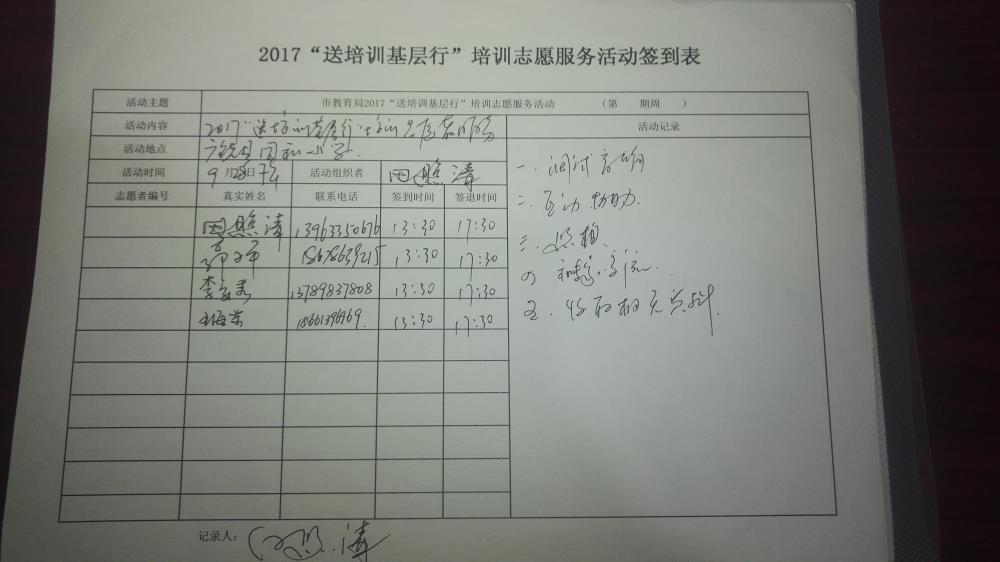 2017“送培训基层行”培训志愿服务活动签到表
活动主题 市教育局2017“送培训基层行”培训志愿服务活动 （第 期周 ）
活动内容 2017“送培训基层行”培训志愿服务 活动记录
活动地点 同和小学
活动时间 9月28日 活动组织者 田照涛
志愿者编号 真实姓名 联系电话 签到时间 签退时间
田照涛 13963350676 13:30 17:30
18678639215 13:30 17:30
李 13789837808 13:30 17:30
王海荣 18661396969. 13:30 17:30
一.调试音响
二.互动协助.
三.照相
四
五.收取相关资料.
记录人： 田照涛